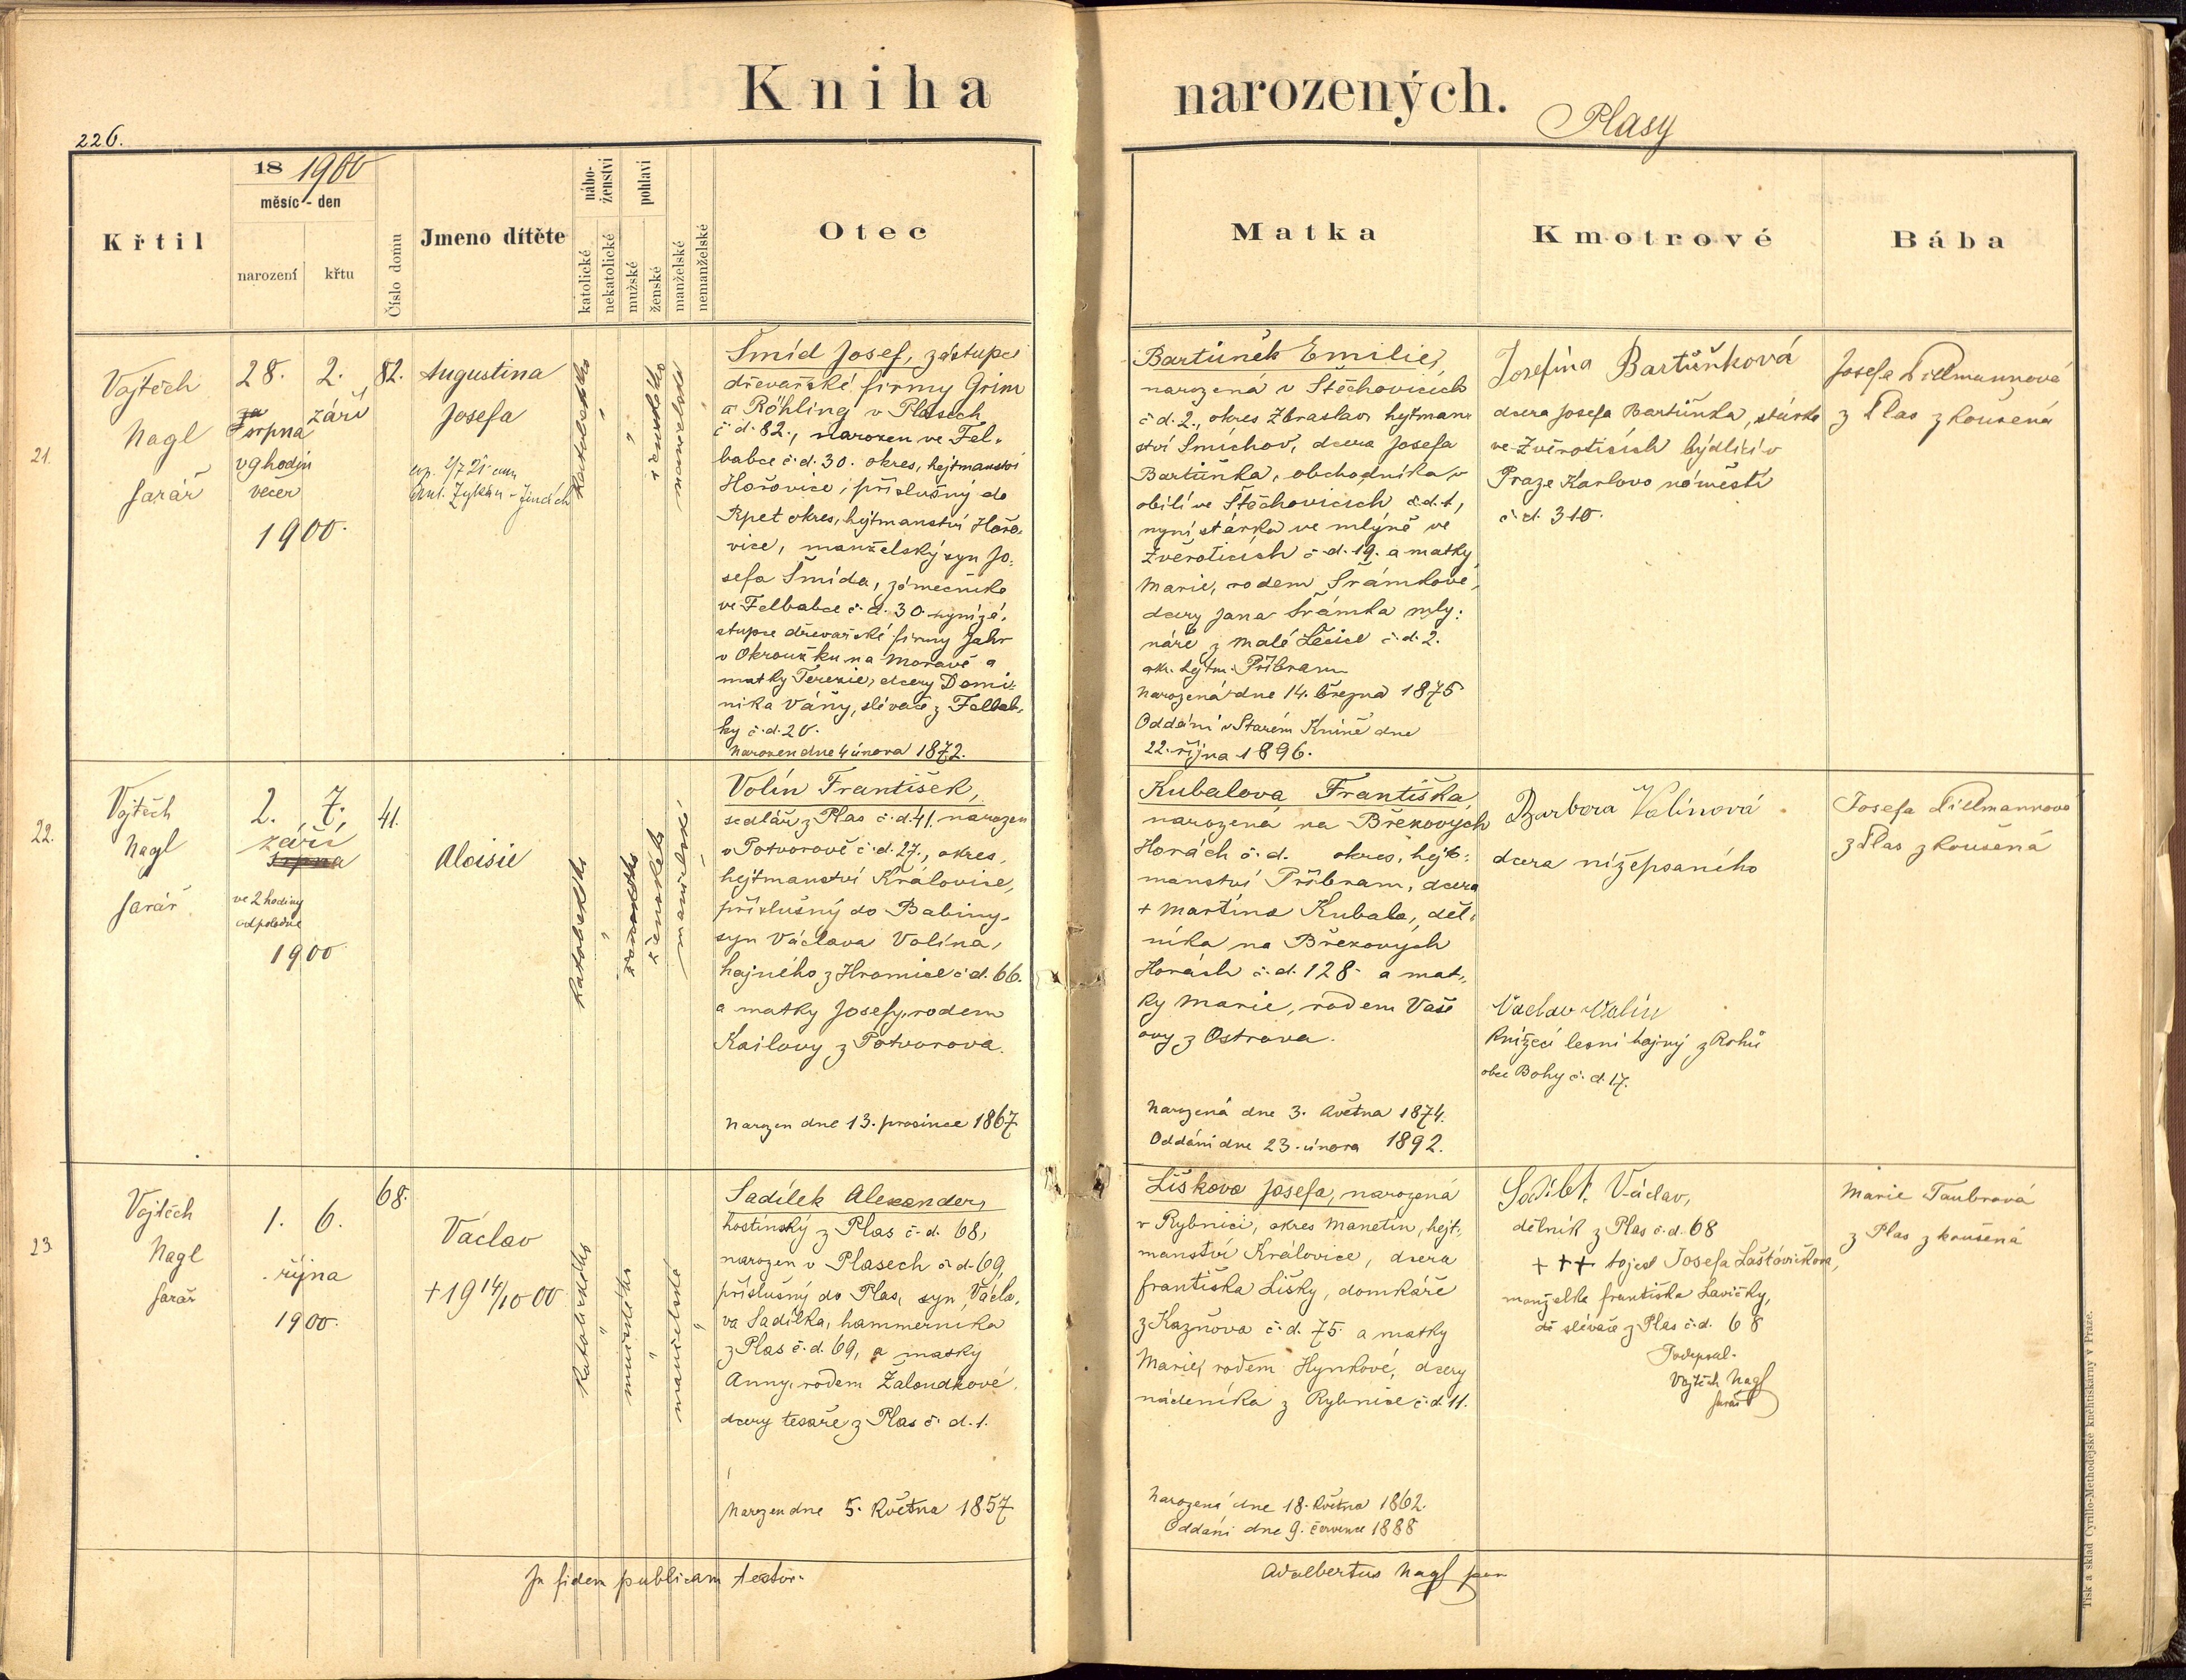 Kniha narozených.
Plasy
226.
Křtil
18 1900
měsíc - den
narození
křtu
Číslo domu
Jmeno dítěte
nábo-
ženství
katolické
nekatolické
pohlaví
mužské
ženské
manželské
nemanželské
Otec
Matka
Kmotrové
Bába
21.
Vojtěch
Nagl
farář
28.
srpna
v 9 hodin
večer
1900.
2.
září
82.
Augustina
Josefa
katolického
"
"
ženského
manželské
Šmíd Josef, zástupce
dřevařské firmy Grim
a Röhling v Plasech
č.d. 82., narozen ve Fel-
babce č.d. 30. okres, hejtmanství
Hořovice, příslušný do
Rpet okres, hejtmanství Hořo-
vice, manželský syn Jo-
sefa Šmída, zámečníka
ve Felbabce č.d. 30 nyní zá-
stupce dřevařské firmy Jahr
v Okroužku na Moravě a
matky Terezie, dcery Domi-
nika Váňy, slévače z Felbab-
ky č.d. 20.
Narozen dne 4 února 1872.
Bartůněk Emilie,
narozená v Štěchovicích
č.d. 2., okres Zbraslav hejtman-
ství Smíchov, dcera Josefa
Bartůňka, obchodníka v
obilí ve Štěchovicích č.d. 1,
nyní stárka ve mlýně ve
Zvěroticích č.d. 19. a matky
Marie, rodem Šrámkové,
dcery Jana Šrámka mly-
náře z Malé Lečice č.d. 2.
okr. hejtm. Příbram
Narozená dne 14. března 1875
Oddáni v Starém Kníně dne
22. října 1896.
Josefina Bartůňková
dcera Josefa Bartůňka, stárka
ve Zvěroticích bydlící v
Praze Karlovo náměstí
č.d. 310.
Josefa Tillmannová
z Plas zkoušená
22.
Vojtěch
Nagl
farář
2.
září
srpna
ve 2 hodiny
odpoledne
1900
7.
41.
Aloisie
katolického
"
ženského
manželské
"
Volín František,
sedlář z Plas č.d. 41. narozen
v Potvorově č.d. 27., okres,
hejtmanství Kralovice,
příslušný do Babiny,
syn Václava Volína,
hajného z Hromice č.d. 66.
a matky Josefy, rodem
Kailovy z Potvorova.
Narozen dne 13. prosince 1867
Kubalova Františka,
narozena na Březových
Horách č.d. okres, hejt-
manství Příbram, dcera
+ Martina Kubala, děl-
níka na Březových
Horách č.d. 128. a mat-
ky Marie, rodem Vaše
ovy z Ostrova.
Narozená dne 3. května 1874.
Oddáni dne 23. února 1892.
Barbora Volínová
dcera nížepsaného
Václav Volín
knížecí lesní hajný z Rohů
obce Bohy č.d. 17.
Josefa Tillmannová
z Plas zkoušená
23.
Vojtěch
Nagl
farář
1.
6.
října
1900.
68.
Václav
+ 19 14/10 00
katolického
"
mužského
"
manželské
"
Sadílek Alexander,
hostinský z Plas č.d. 68,
narozen v Plasech č.d. 69,
příslušný do Plas, syn Václa-
va Sadílka, hammerníka
z Plas č.d. 69, a matky
Anny, rodem Žaloudkové,
dcery tesaře z Plas č.d. 1.
Narozen dne 5. května 1857
Lišková Josefa, narozená
v Rybnici, okres Manetín, hejt-
manství Kralovice, dcera
Františka Lišky, domkáře
z Kaznova č.d. 75. a matky
Marie, rodem Hynkové, dcery
nádeníka z Rybnice č.d. 11.
Narozená dne 18. května 1862.
Oddáni dne 9. července 1888
Václav,
dělník z Plas č.d. 68
+++ to jest Josefa Laštovičkova,
manželka Františka Lavičky,
slévače z Plas č.d. 68
Podepsal.
Vojtěch Nagl
farář
Marie Taubrová
z Plas zkoušená
In fidem publicam testor.
Adalbertus Nagl
Tisk a sklad Cyrillo-Methodějské knihtiskárny v Praze.